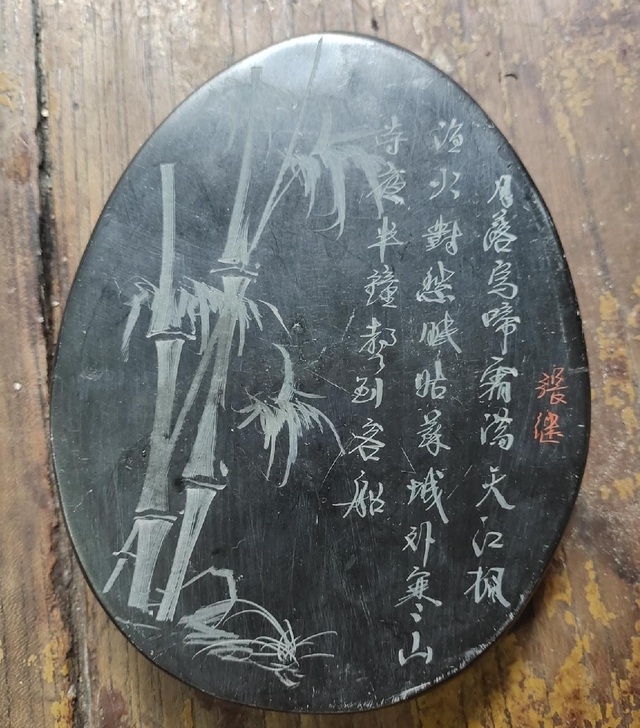 張继
月落烏啼霜满天江楓
渔火對愁眠姑蘇城外寒山
寺夜半鐘聲到客船